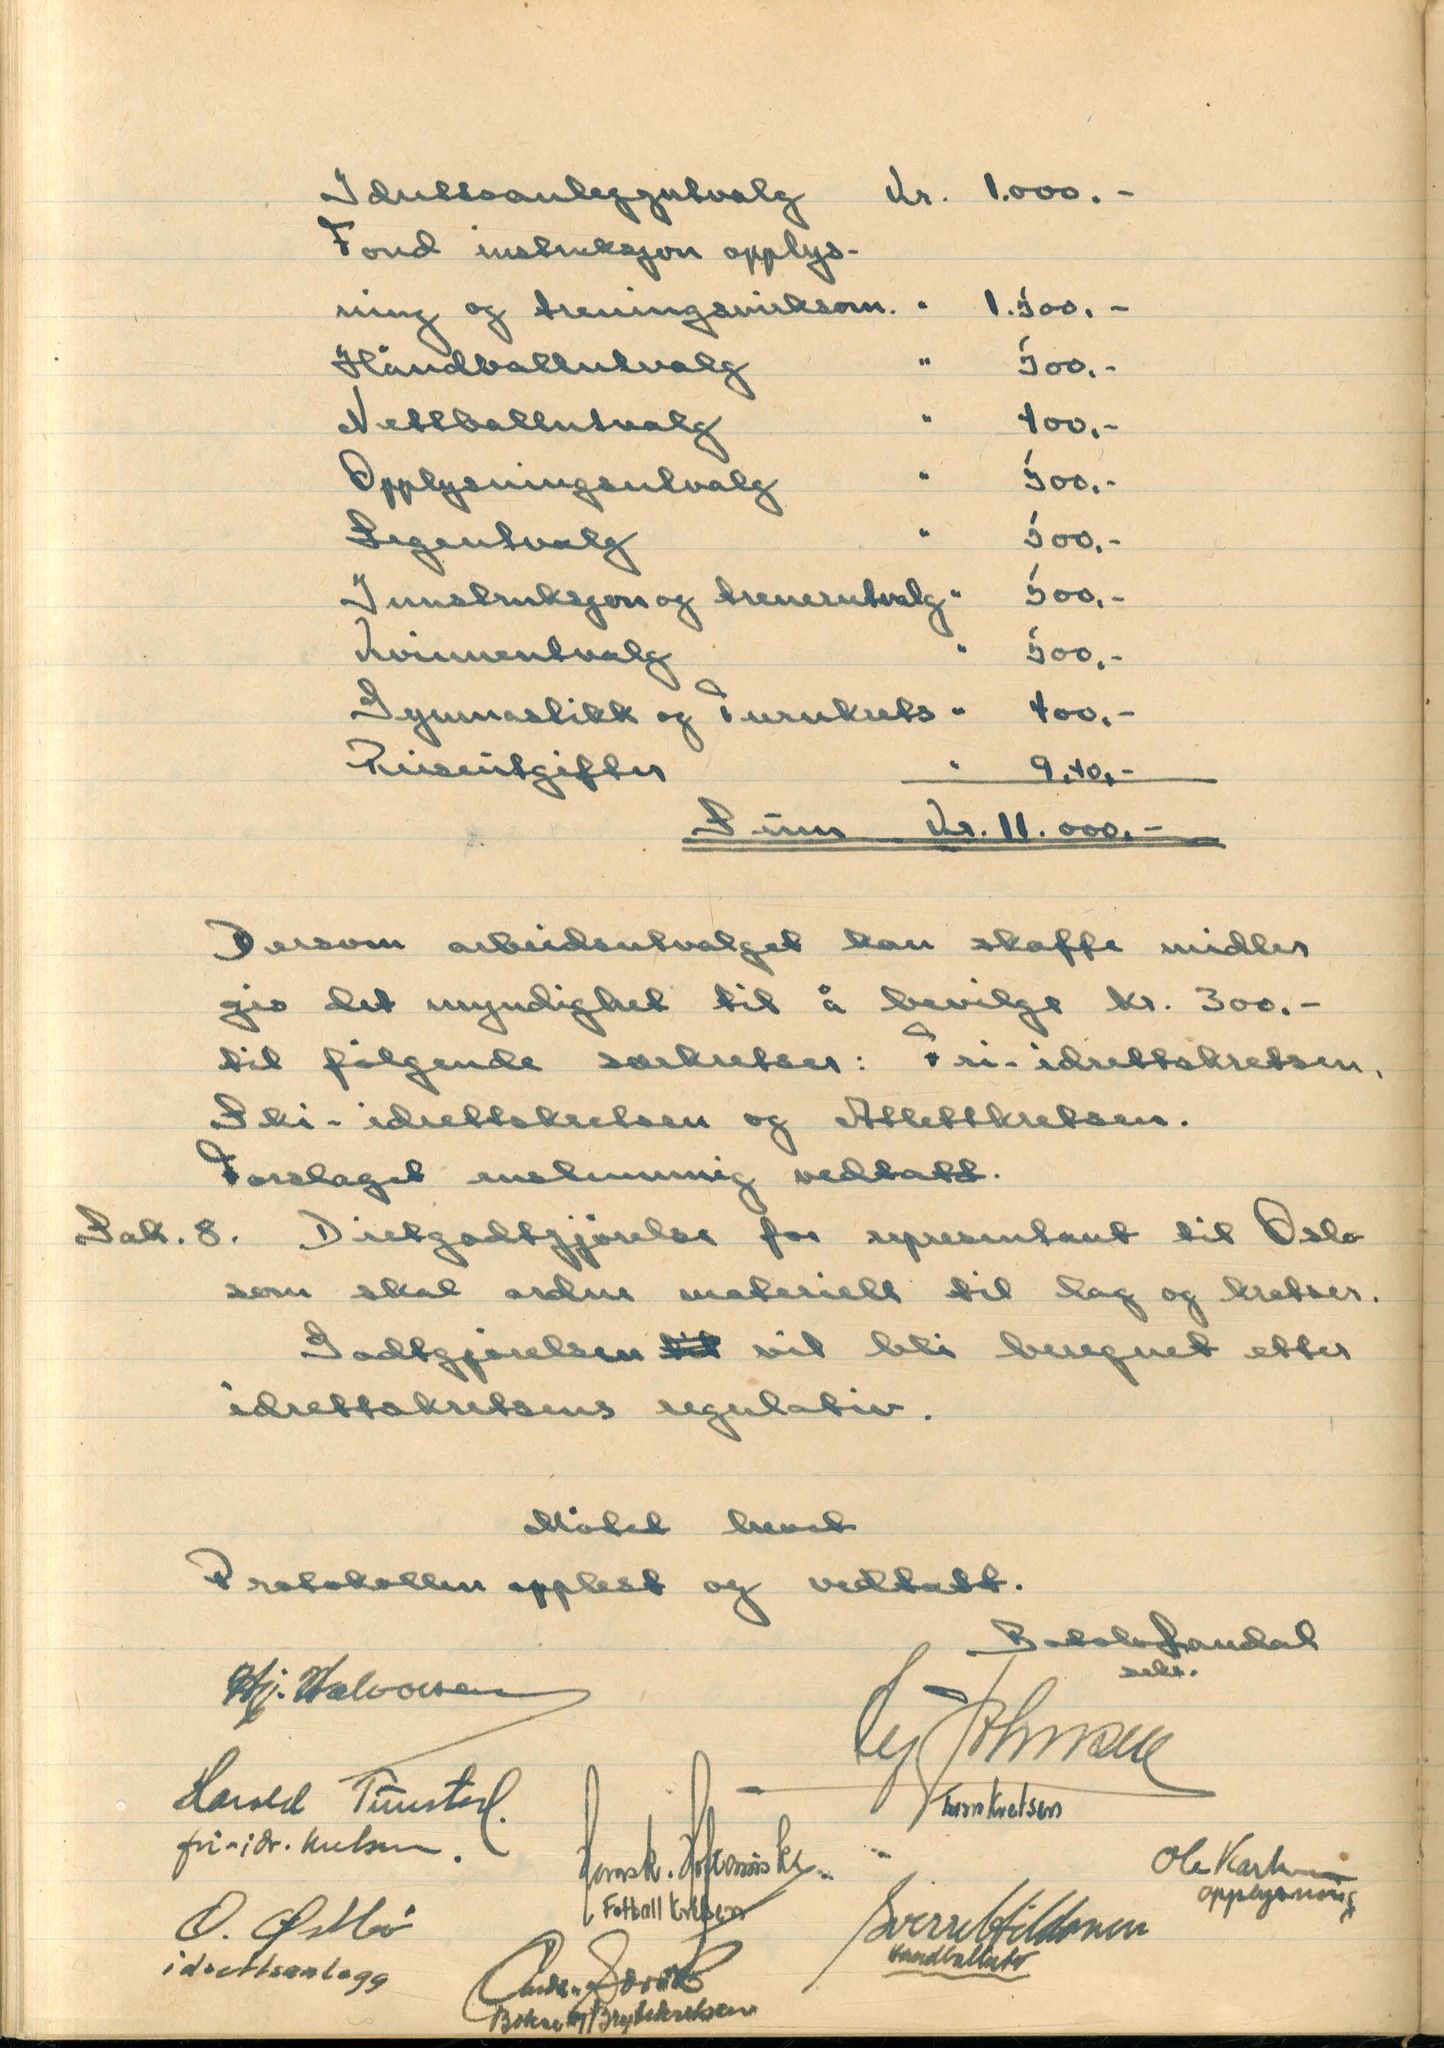 Idrettsanleggutvalg Kr. 1.000.-
Fond instruksjon opplys-
ning og treningsvirksom. " 1.500.-
Håndballutvalg " 500.-
Nettballutvalg " 400.-
Opplysningsutvalg " 500.-
Legeutvalg " 500.-
Innstruksjon og trenerutvalg " 500.-
Kvinneutvalg " 500.-
Gymnastikk og Turnkrets " 400.-
Reiseutgifter " 940.-
Sum Kr. 11.000.-
Dersom arbeidsutvalget kan skaffe midler
gis det myndighet til å bevilge kr. 300.-
til følgende særkretser: Fri-idrettskretsen,
Ski-idrettskretsen og Atlettkretsen.
Forslaget enstemmig vedtatt.
Sak. 8. Dietgodtgjørelse for representant til Oslo
som skal ordne materiell til lag og kretser.
Godtgjørelsen vil bli beregnet etter
idrettskretsens regulativ.
Møtet hevet
Protokollen opplest og vedtatt.
Sandal
sekr.
Hj. Halvorsen
Johnsen
Turnkretsen
Harald
fri-idr. kretsen.
Fotball kretsen
Ole Karl
opplysning
O. Østbø
idrettsanlegg
Sverre Hildonen
Handballutv
Bokse og Brytekretsen